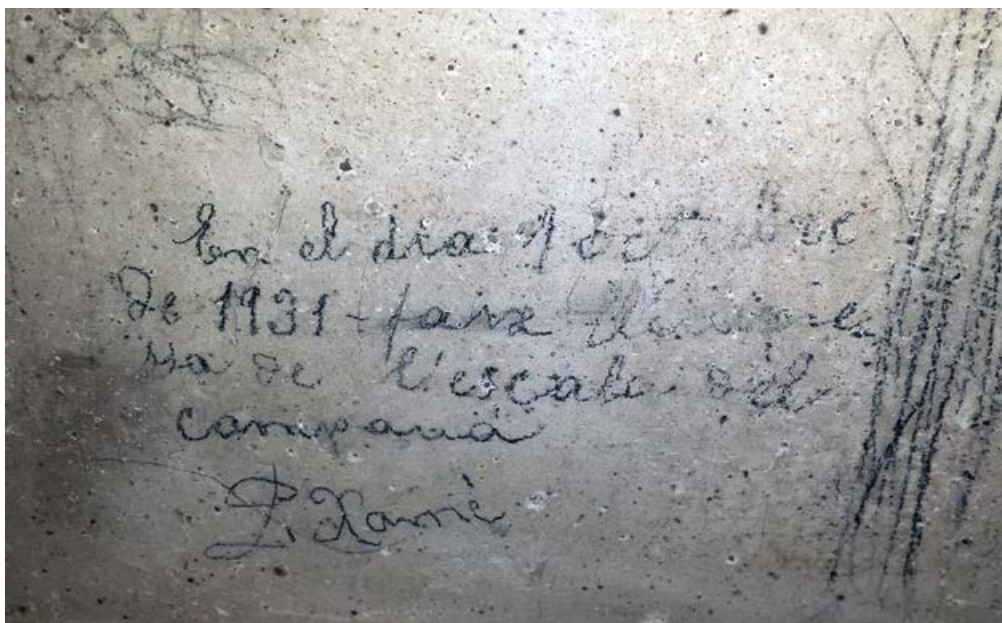 En el dia 9 Octubre
de 1931 - fanx
ssa de l'escala del
campaná
P. Xamé